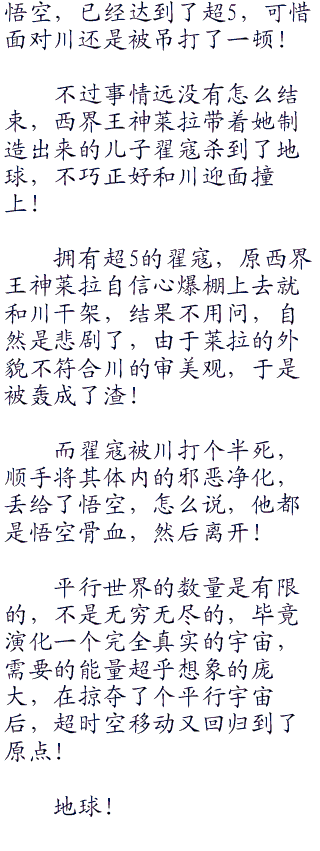 悟空，已经达到了超5，可惜
面对川还是被吊打了一顿！
不过事情远没有怎么结
束，西界王神莱拉带着她制
造出来的儿子翟寇杀到了地
球，不巧正好和川迎面撞
上！
拥有超5的翟寇，原西界
王神莱拉自信心爆棚上去就
和川干架，结果不用问，自
然是悲剧了，由于莱拉的外
貌不符合川的审美观，于是
被轰成了渣！
而翟寇被川打个半死，
顺手将其体内的邪恶净化，
丢给了悟空，怎么说，他都
是悟空骨血，然后离开！
平行世界的数量是有限
的，不是无穷无尽的，毕竟
演化一个完全真实的宇宙，
需要的能量超乎想象的庞
大，在掠夺了个平行宇宙
后，超时空移动又回归到了
原点！
地球！